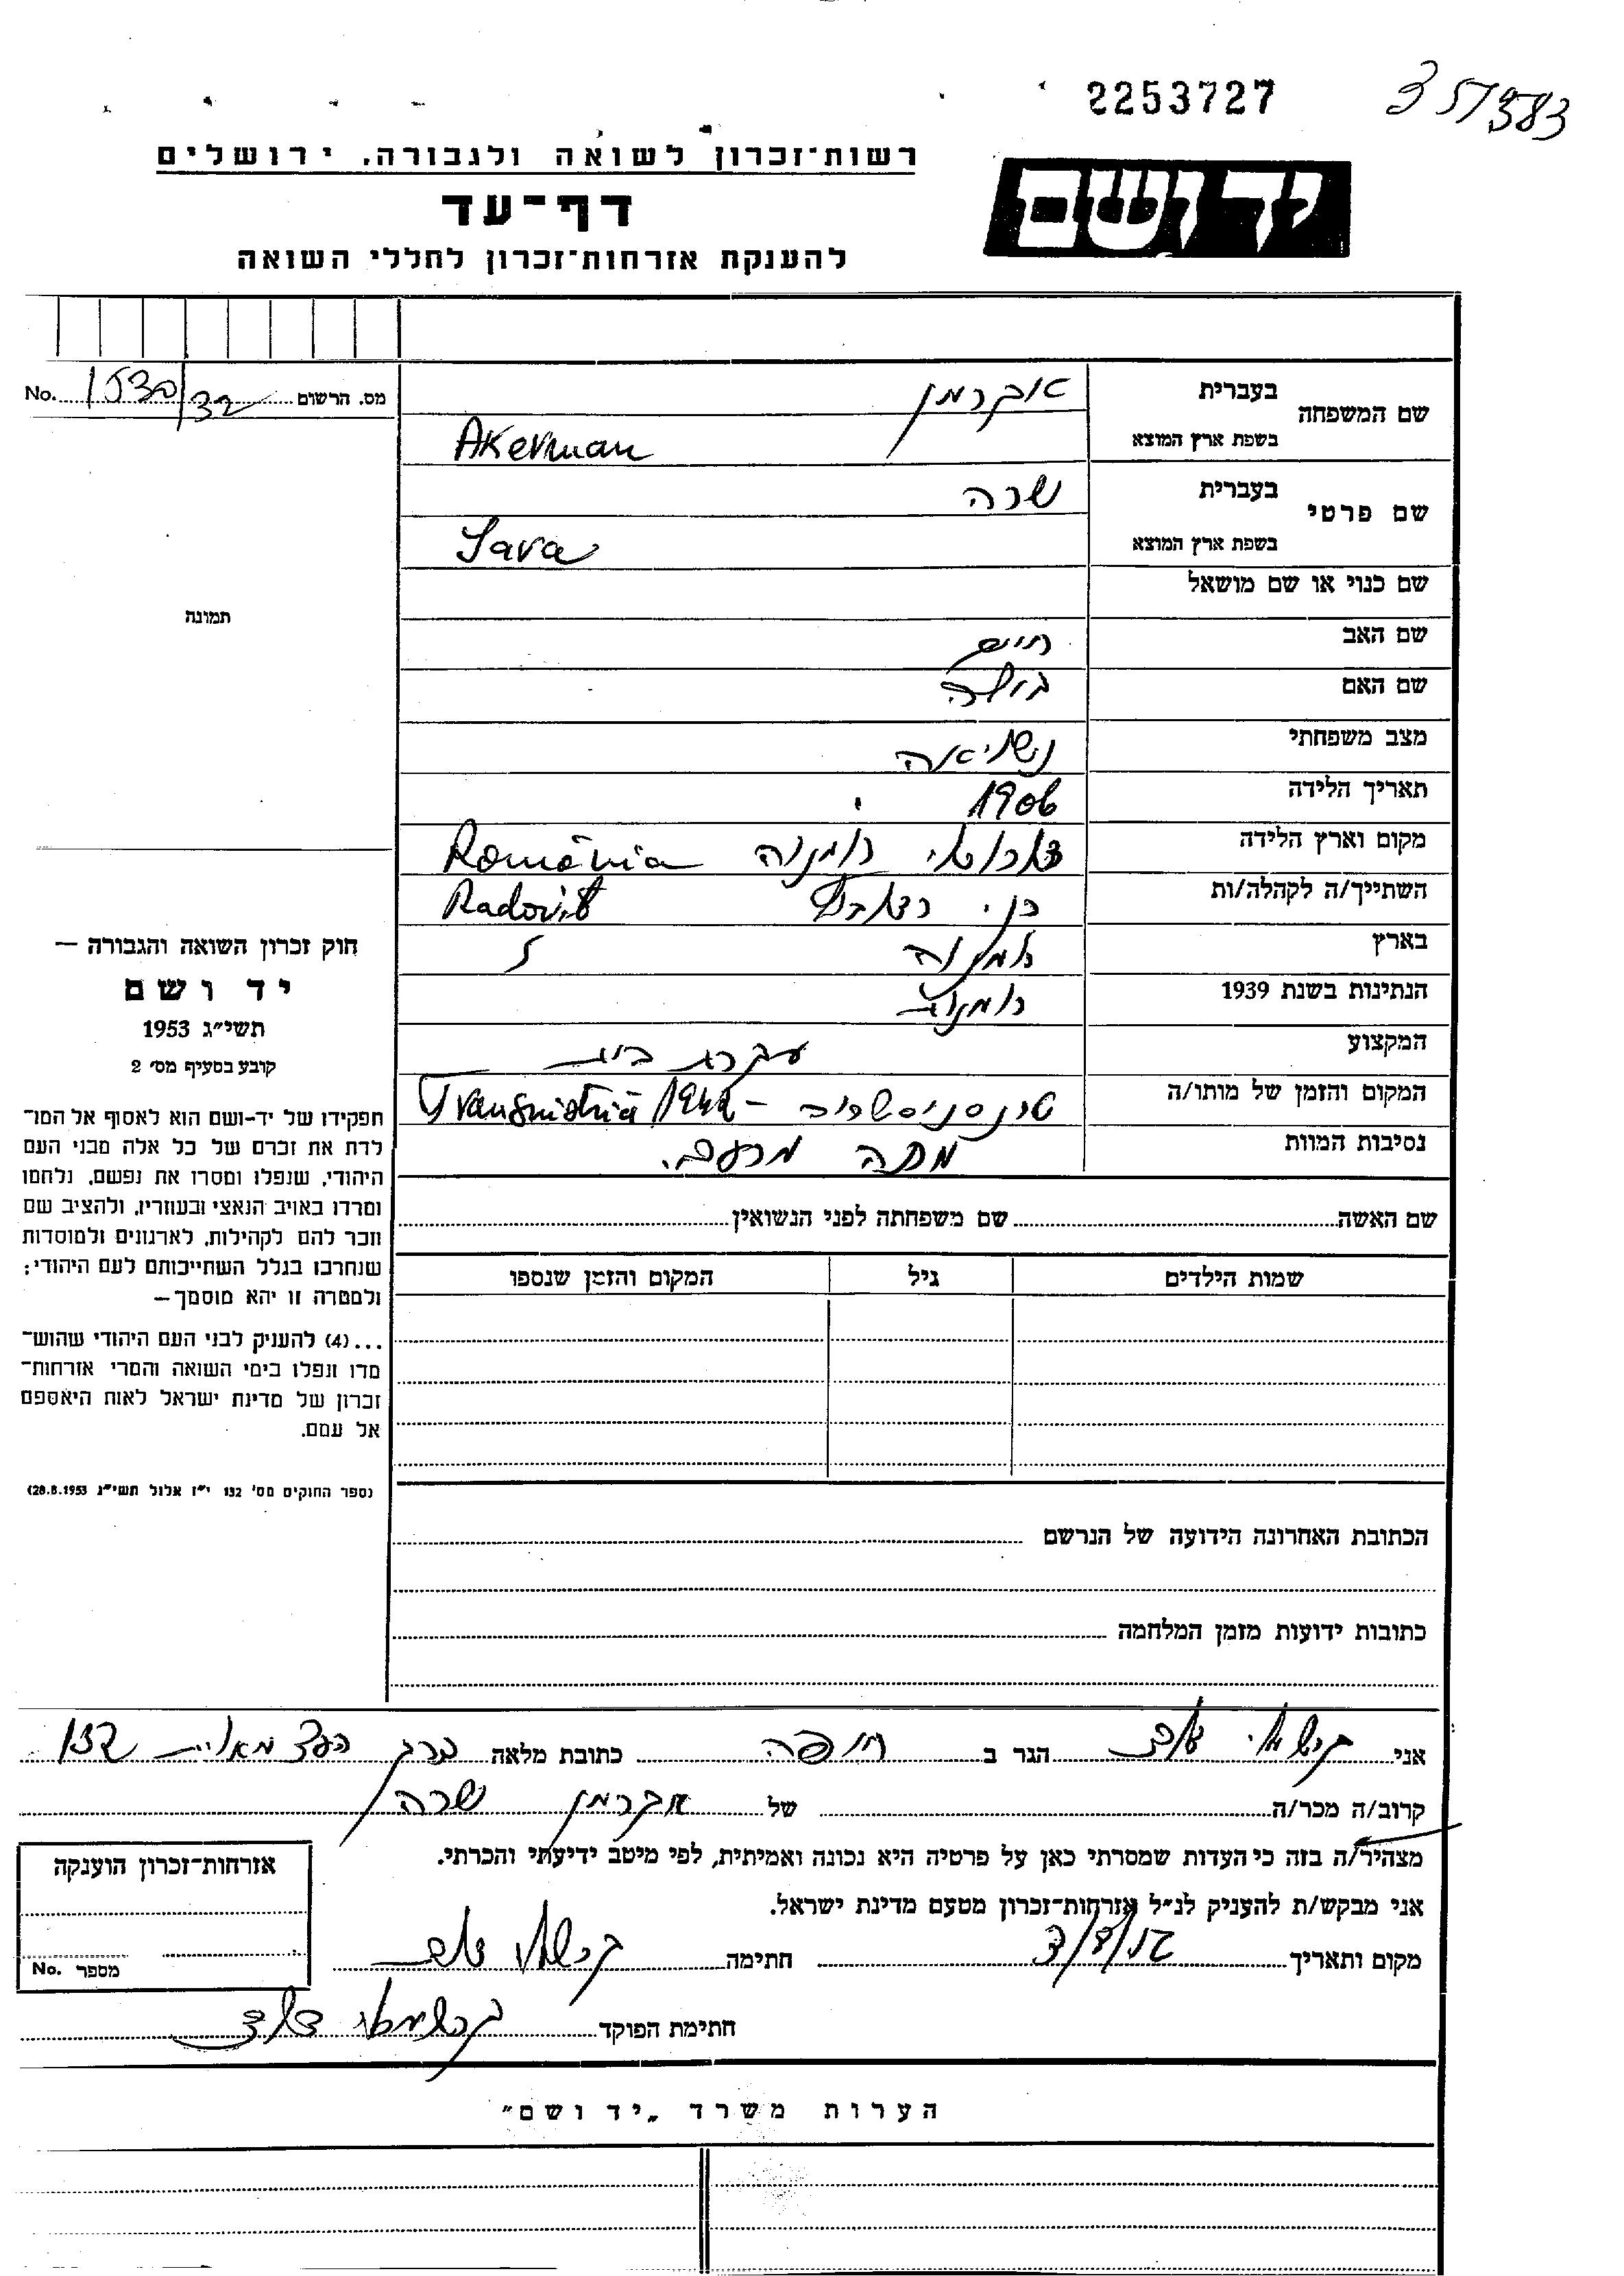 2253727
351583
רשות־זכרון לשואה ולגבורה. ירושלים
יד ושם
דף־עד
להענקת אזרחות־זכרון לחללי השואה
שם המשפחה בעברית אקרמן
בשפת ארץ המוצא Akerman
מס. הרשום No.
שם פרטי בעברית שרה
בשפת ארץ המוצא Sara
שם כנוי או שם מושאל
תמונה
שם האב חיים
שם האם
מצב משפחתי נשואה
תאריך הלידה 1906
מקום וארץ הלידה רומניה România
השתייך/ה לקהלה/ות Radovitz
בארץ רומניה
הנתינות בשנת 1939 רומנית
המקצוע עקרת בית
המקום והזמן של מותו/ה טרנסניסטריה - 1942 Transnistria
נסיבות המוות מתה מרעב.
שם האשה שם משפחתה לפני הנשואין
שמות הילדים גיל המקום והזמן שנספו
חוק זכרון השואה והגבורה —
יד ושם
תשי״ג 1953
קובע בסעיף מס׳ 2
תפקידו של יד-ושם הוא לאסוף אל המו־
לדת את זכרם של כל אלה מבני העם
היהודי, שנפלו ומסרו את נפשם, נלחמו
ומרדו באויב הנאצי ובעוזריו, ולהציב שם
וזכר להם לקהילות, לארגונים ולמוסדות
שנחרבו בגלל השתייכותם לעם היהודי;
ולמטרה זו יהא מוסמך—
...(4) להענק לבני העם היהודי שהוש־
מדו ונפלו בימי השואה והמרי אזרחות־
זכרון של מדינת ישראל לאות היאספם
אל עמם.
(ספר החוקים מס׳ 132 י״ז אלול תשי״ג 28.8.1953)
הכתובת האחרונה הידועה של הנרשם
כתובות ידועות מזמן המלחמה
אני הגר ב חיפה כתובת מלאה
קרוב/ה מכר/ה של אקרמן שרה
מצהיר/ה בזה כי העדות שמסרתי כאן על פרטיה היא נכונה ואמיתית, לפי מיטב ידיעתי והכרתי.
אני מבקש/ת להעניק לנ״ל אזרחות־זכרון מטעם מדינת ישראל.
מקום ותאריך חתימה
חתימת הפוקד
אזרחות־זכרון הוענקה
מספר No.
הערות משרד „יד ושם״